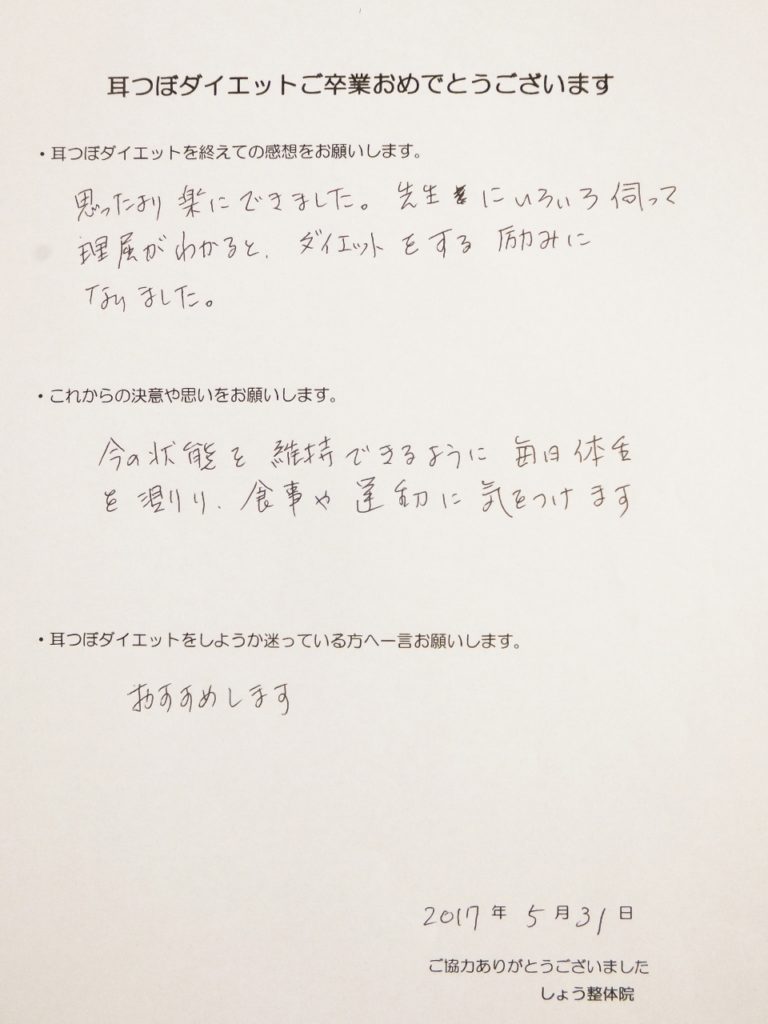 耳つぼダイエットご卒業おめでとうございます
・耳つぼダイエットを終えての感想をお願いします。
思ったより楽にできました。先生にいろいろ伺って
理屈がわかると、ダイエットをする励みに
なりました。
・これからの決意や思いをお願いします。
今の状態を維持できるように毎日体重
を測り、食事や運動に気をつけます
・耳つぼダイエットをしようか迷っている方へ一言お願いします。
おすすめします
2017年5月31日
ご協力ありがとうございました
しょう整体院